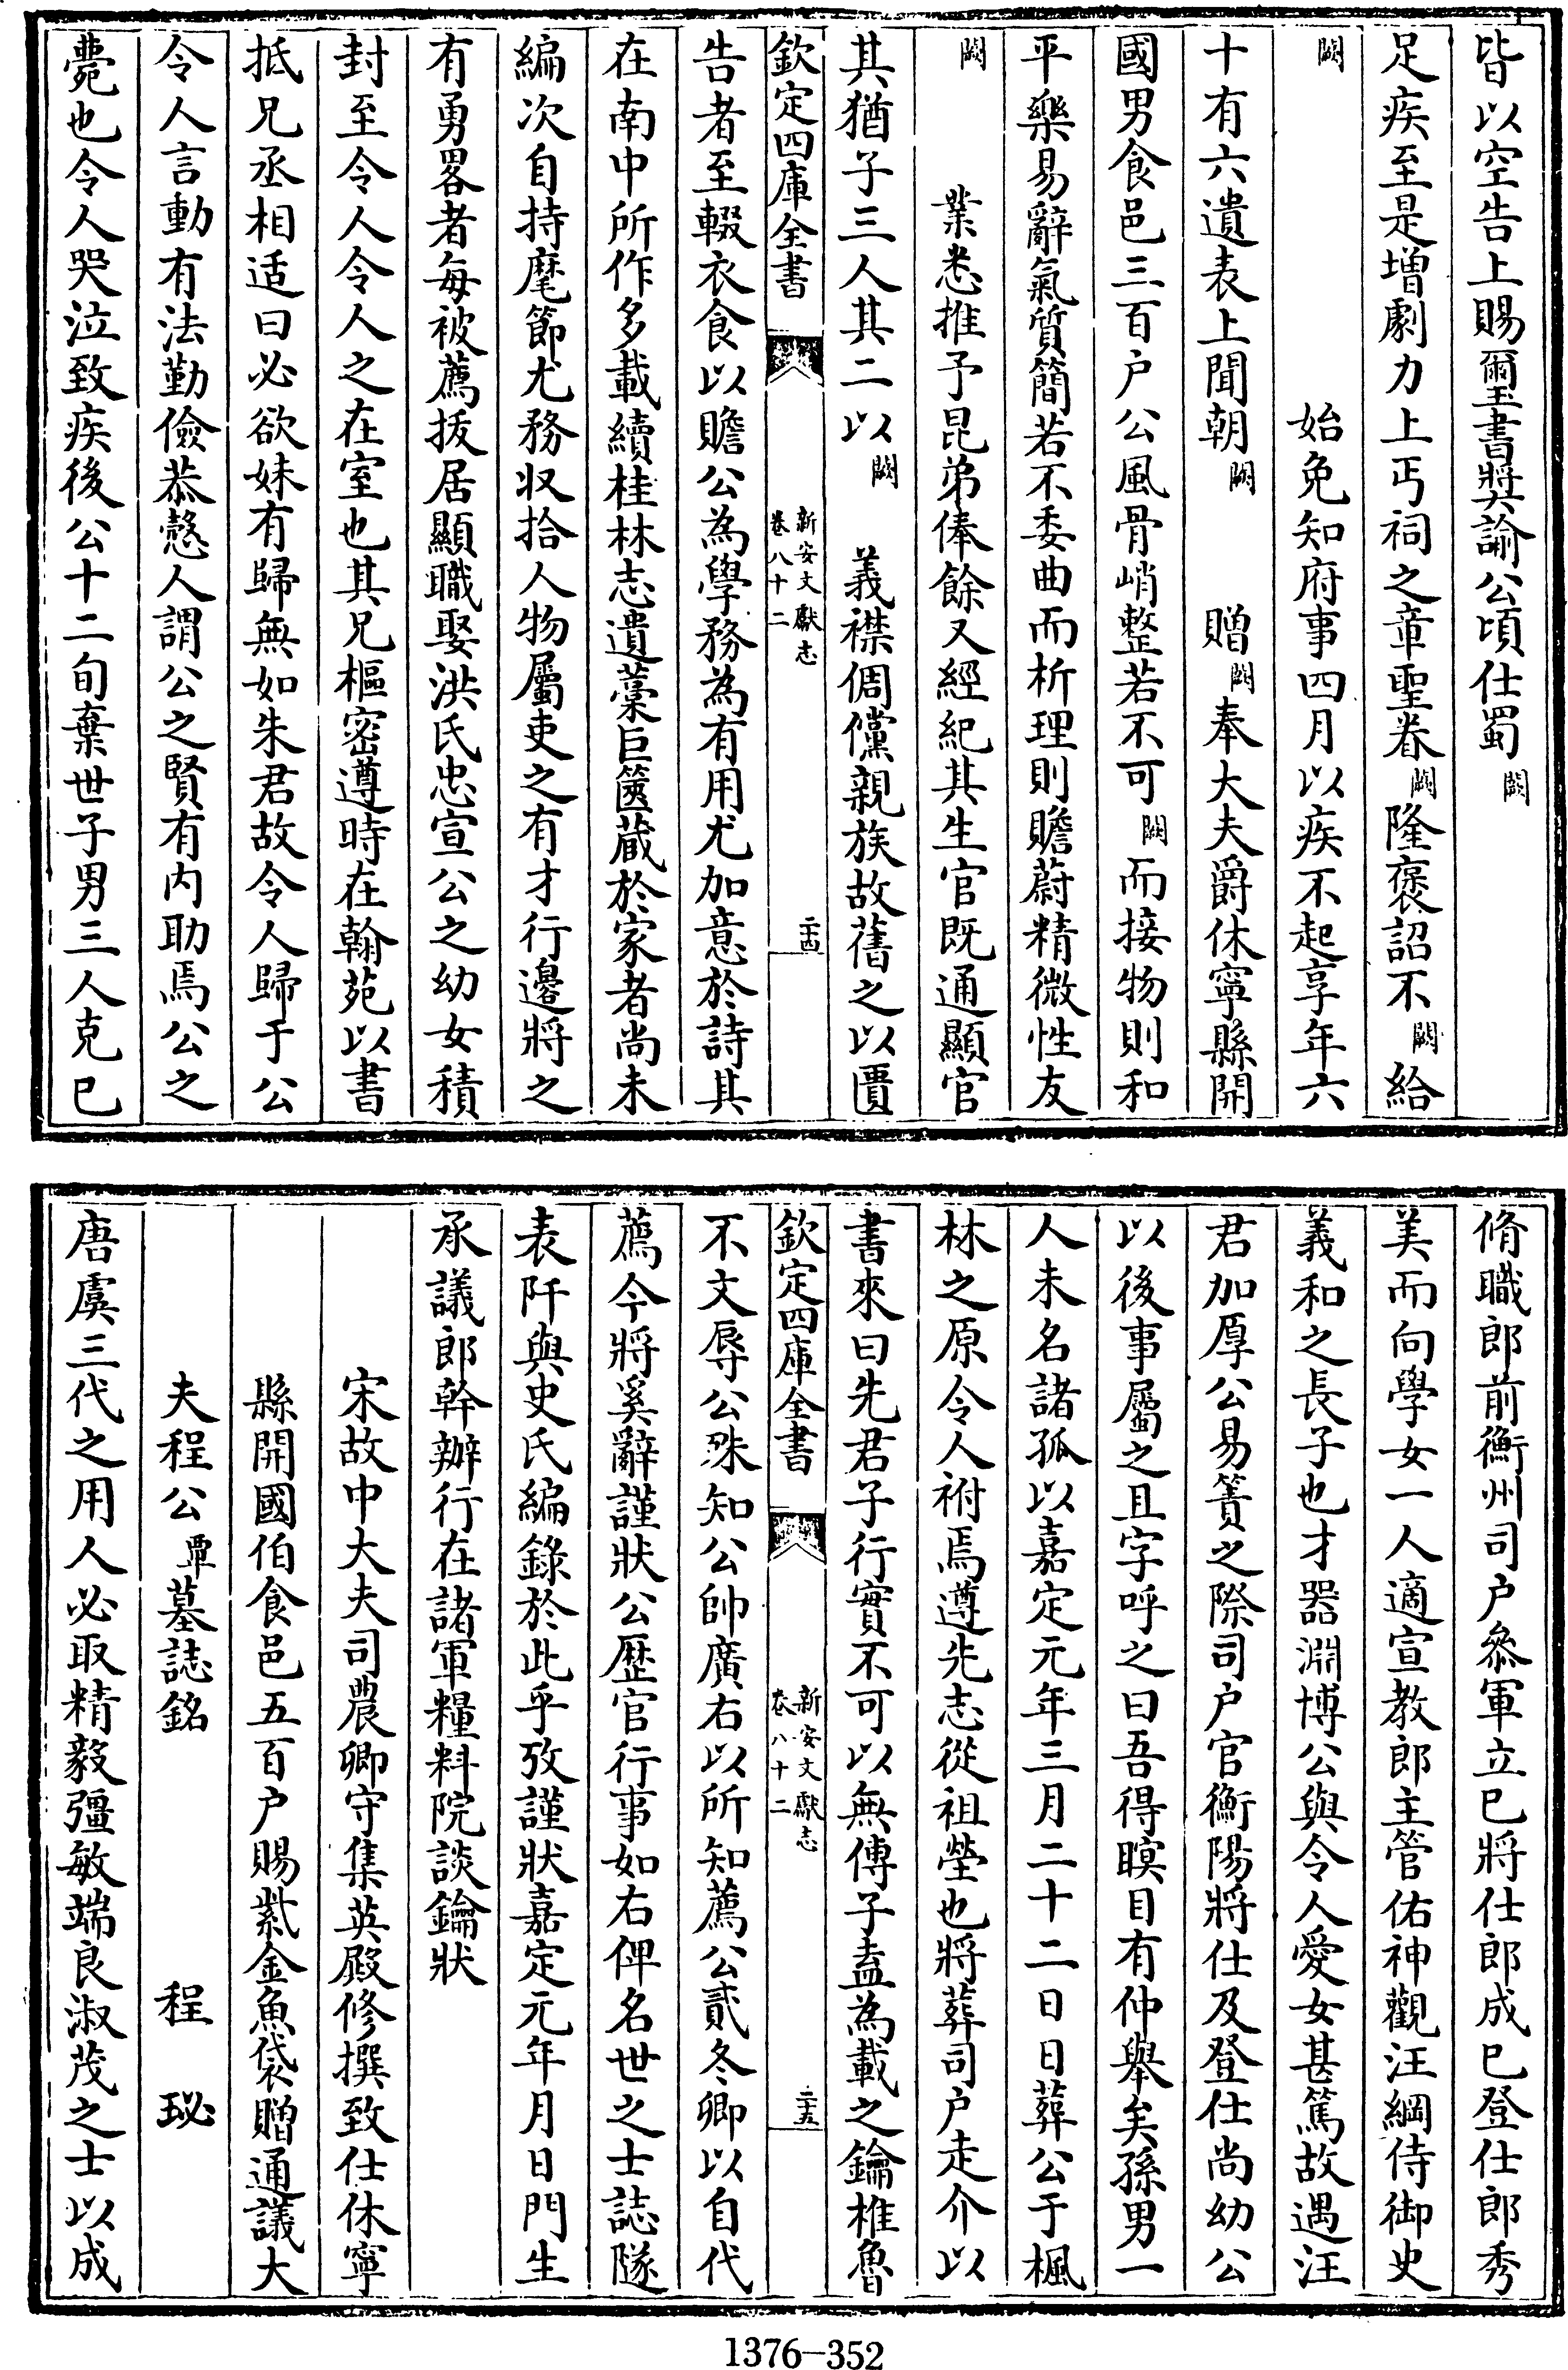 皆以空告上賜璽書奬諭公頃仕蜀闕
足疾至是增劇力上丐祠之章聖眷闕隆褒詔不闕給
闕始免知府事四月以疾不起享年六
十有六遺表上聞朝闕贈闕奉大夫爵休寧縣開
國男食邑三百户公風骨峭整若不可闕而接物則和
平樂易辭氣質簡若不委曲而析理則贍蔚精微性友
闕業悉推予昆弟俸餘又經紀其生官既通顯官
其猶子三人其二以闕義襟倜儻親族故舊之以匱
欽定四庫全書
新安文獻志
卷八十二
二十四
告者至輟衣食以贍公為學務為有用尤加意於詩其
在南中所作多載續桂林志遺藁巨篋藏於家者尚未
編次自持麾節尤務收拾人物屬吏之有才行邊將之
有勇畧者每被薦拔居顯職娶洪氏忠宣公之幼女積
封至令人令人之在室也其兄樞密遵時在翰苑以書
抵兄丞相适曰必欲妹有歸無如朱君故令人歸于公
令人言動有法勤儉恭慤人謂公之賢有内助焉公之
薨也令人哭泣致疾後公十二旬棄世子男三人克已
脩職郎前衡州司户叅軍立已將仕郎成已登仕郎秀
美而向學女一人適宣教郎主管佑神觀汪綱侍御史
義和之長子也才器淵博公與令人愛女甚篤故遇汪
君加厚公易簀之際司户官衡陽將仕及登仕尚幼公
以後事屬之且字呼之曰吾得瞑目有仲舉矣孫男一
人未名諸孤以嘉定元年三月二十二日日葬公于楓
林之原令人祔焉遵先志從祖塋也將葬司户走介以
書來曰先君子行實不可以無傳子盍為載之鑰椎魯
欽定四庫全書
新安文獻志
卷八十二
二十五
不文辱公殊知公帥廣右以所知薦公貳冬卿以自代
薦今將奚辭謹狀公歴官行事如右俾名世之士誌隧
表阡與史氏編錄於此乎攷謹狀嘉定元年月日門生
承議郎幹辦行在諸軍糧料院談鑰狀
宋故中大夫司農卿守集英殿修撰致仕休寧
縣開國伯食邑五百户賜紫金魚袋贈通議大
夫程公覃墓誌銘
程珌
唐虞三代之用人必取精毅彊敏端良淑茂之士以成
1376-352